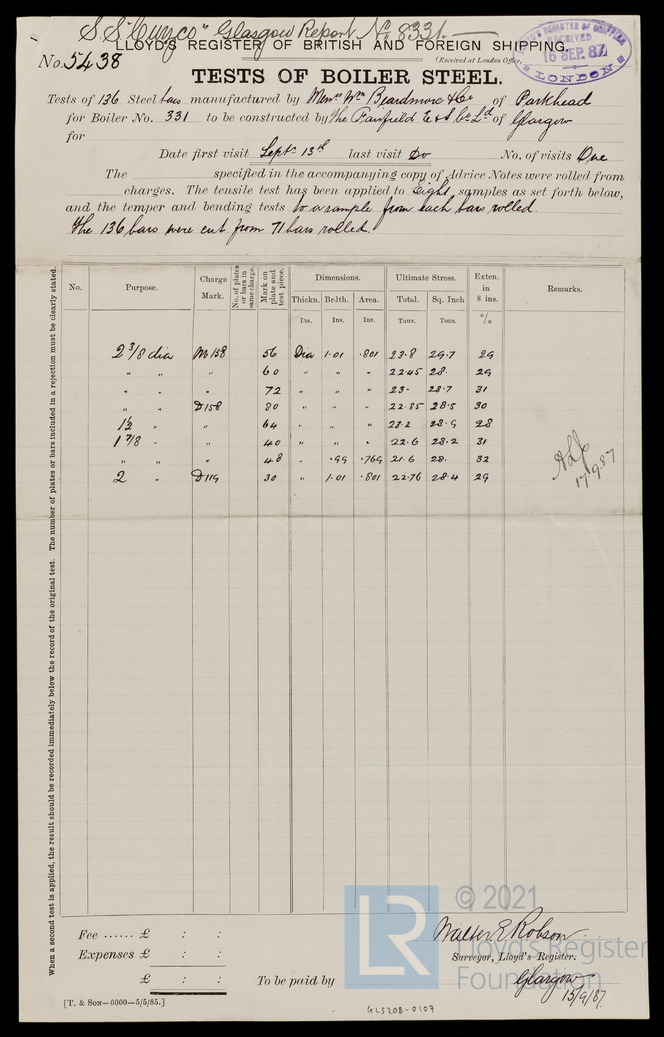 S.S. "Cuzco" Glasgow Report No 8331.
LLOYD'S REGISTER OF BRITISH AND FOREIGN SHIPPING.
No. 5438
(Received at London Office,
LLOYD'S REGISTER OF BRITISH
RECEIVED
16 SEP. 87
LONDON
TESTS OF BOILER STEEL.
Tests of 136 Steel bars manufactured by Messrs Wm Beardmore & Co of Parkhead
for Boiler No. 331 to be constructed by The Fairfield E & S Co Ld of Glasgow
for
Date first visit Septr 13th last visit Do No. of visits One
The specified in the accompanying copy of Advice Notes were rolled from
charges. The tensile test has been applied to Eight samples as set forth below,
and the temper and bending tests to a sample from each bars rolled.
The 136 bars were cut from 71 bars rolled.
When a second test is applied, the result should be recorded immediately below the record of the original test. The number of plates or bars included in a rejection must be clearly stated.
No. Purpose. Charge Mark. No. of plates or bars in same charge. Mark on plate and test piece. Dimensions. Ultimate Stress. Exten. in 8 ins. Remarks.
Thickn. Brdth. Area. Total. Sq. Inch
Ins. Ins. Ins. Tons. Tons. %
2 3/8 dia M 158 56 Dia 1·01 ·801 23·8 29·7 29
" " " 60 " " " 22·45 28· 29
" " " 72 " " " 23· 28·7 31
" " D158 80 " " " 22·85 28·5 30
1½ " " 64 " " " 23·2 28·9 28
1 7/8 " " 40 " " " 22·6 28·2 31
" " " 48 " ·99 ·769 21·6 28· 32
2 " D119 30 " 1·01 ·801 22·76 28·4 29
17.9.87
Fee ...... £ : :
Expenses £ : :
£ : :
To be paid by
Walter E Robson
Surveyor, Lloyd's Register.
Glasgow
15/9/87.
[T. & SON—6000—5/5/85.]
GLS208-0107
LR
© 2021
Lloyd's Register
Foundation